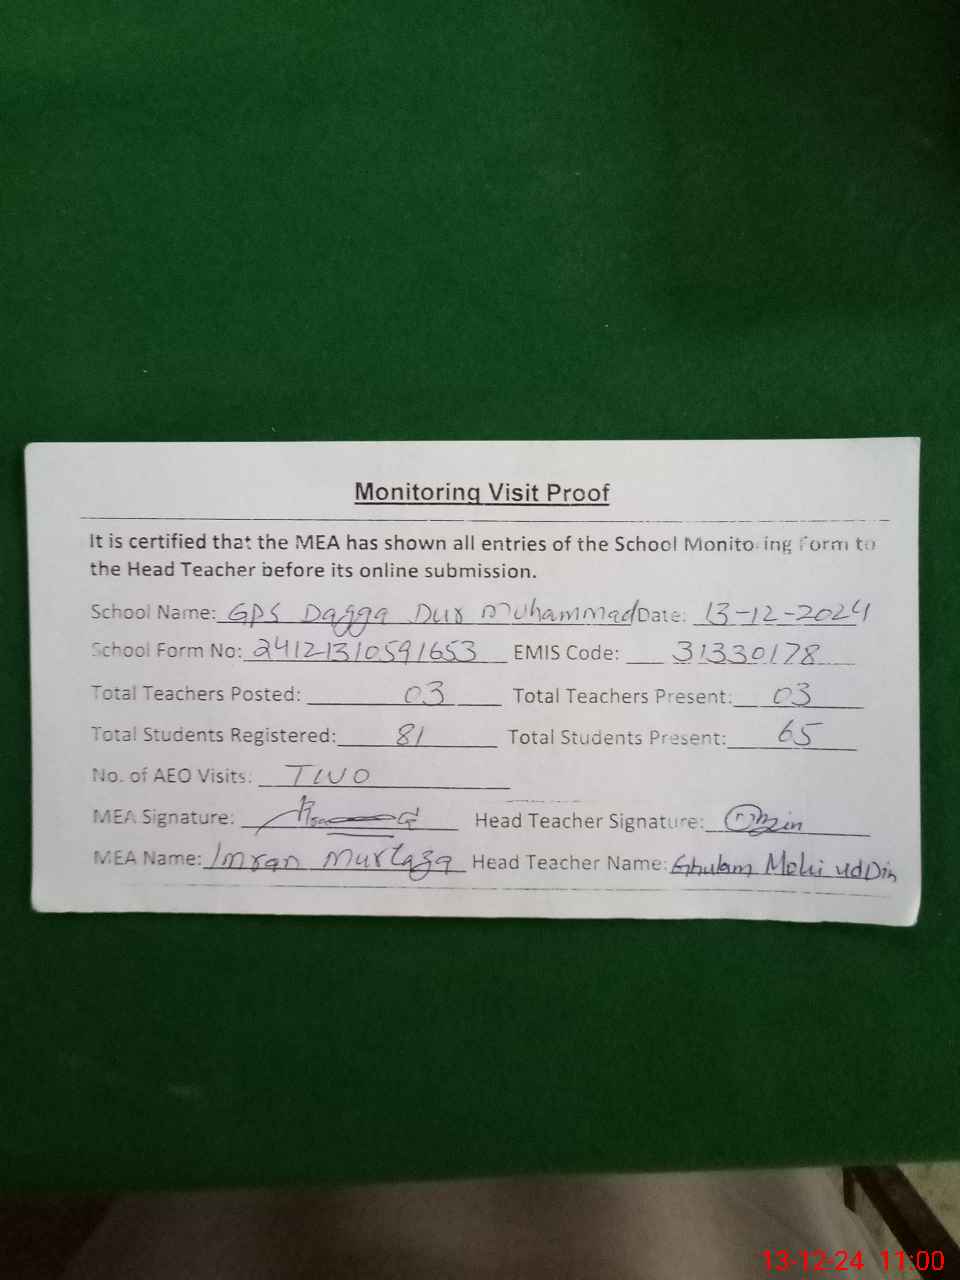 Monitoring Visit Proof
It is certified that the MEA has shown all entries of the School Monitoring Form to
the Head Teacher before its online submission.
School Name: GPS Dagga Dur Muhammad Date: 13-12-2024
School Form No: 24121310591653 EMIS Code: 31330178
Total Teachers Posted: 03 Total Teachers Present: 03
Total Students Registered: 81 Total Students Present: 65
No. of AEO Visits: TWO
MEA Signature: Head Teacher Signature:
MEA Name: Imran Murtaza Head Teacher Name: Ghulam Mohi udDin
13-12-24 11:00